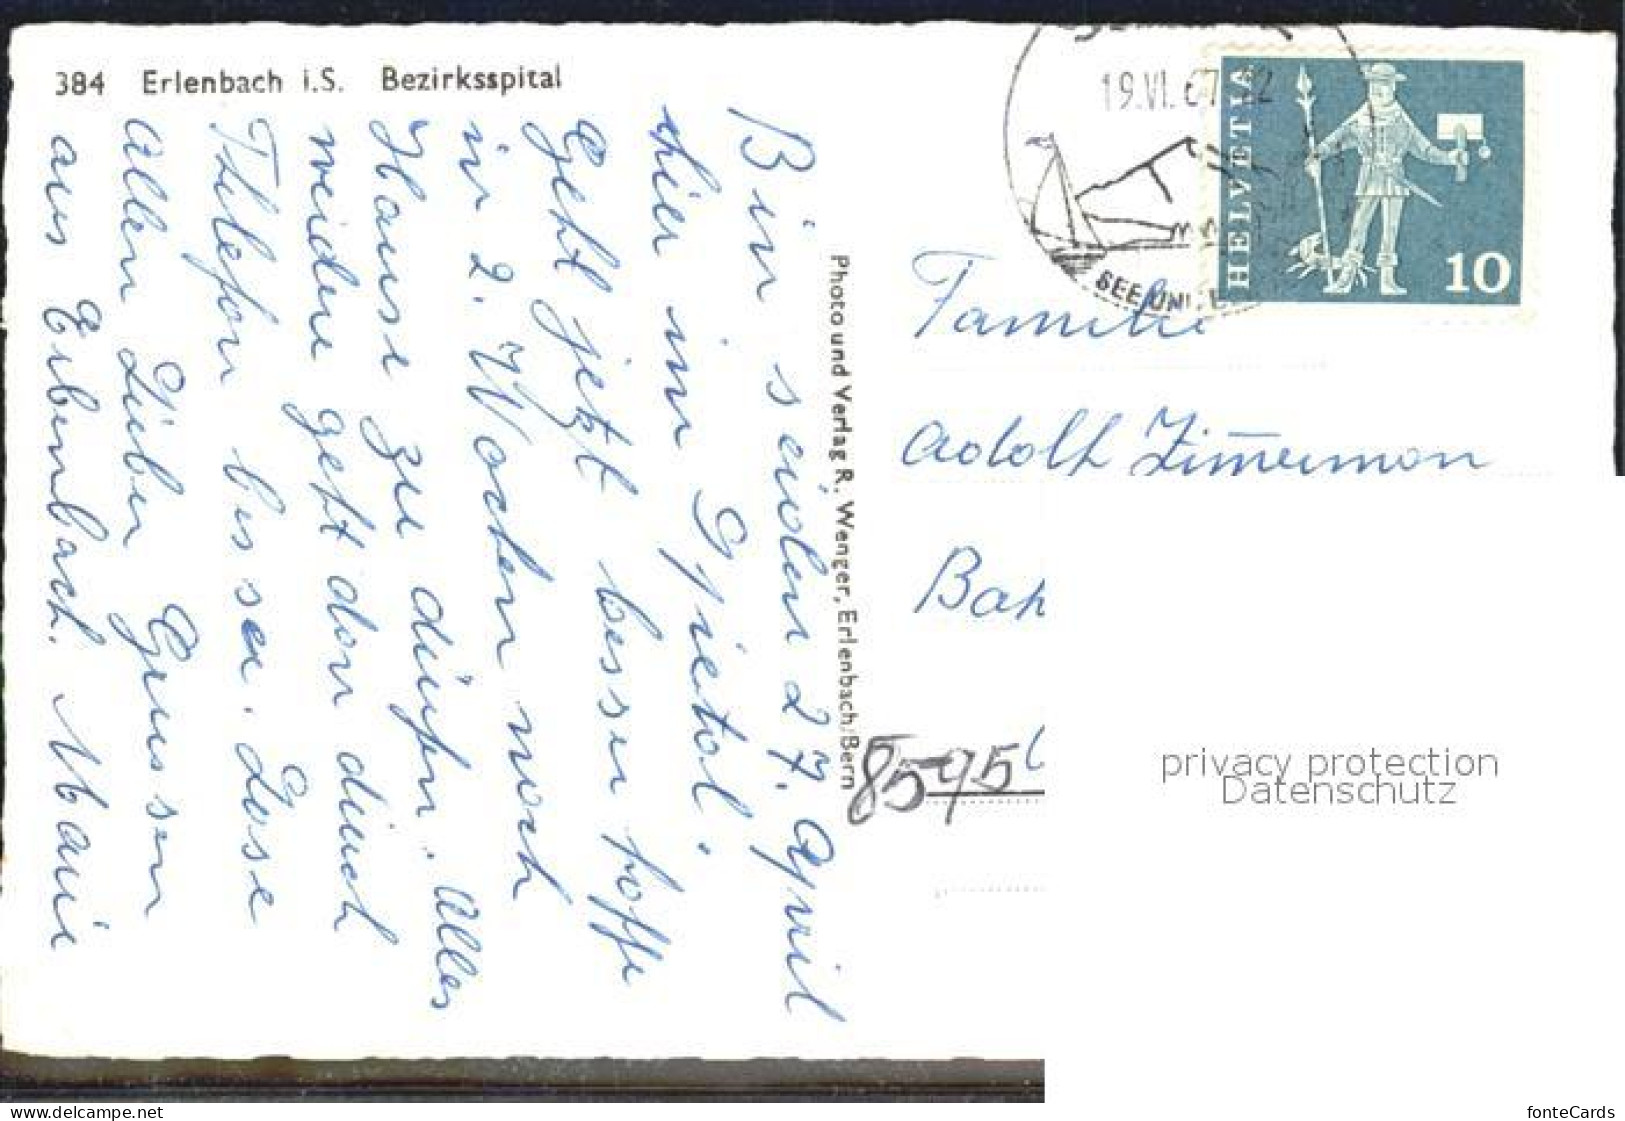 384 Erlenbach i.S. Bezirksspital
Bin seiden 27. April
hier im Spietal.
Geht jetzt besser hoffe
in 2. Wochen noch
Hause zu dürfen. Alles
weidere geht don durch
Thelefon bisser. Losse
Allen Lieben Grüssen
aus Erlenbach. Marie
Photo und Verlag R. Wenger, Erlenbach/Bern
19.VI.67
SEE UN
HELVETIA
10
Familie
Adolf Zimermon
Bah
8595
privacy protection
Datenschutz
www.delcampe.net
fonteCards